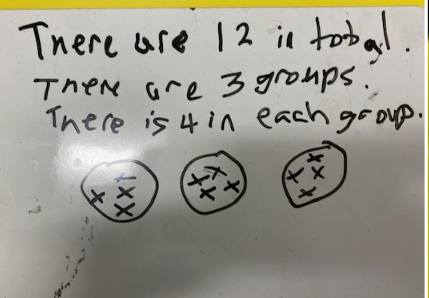 There are 12 in total.
There are 3 groups.
There is 4 in each group.